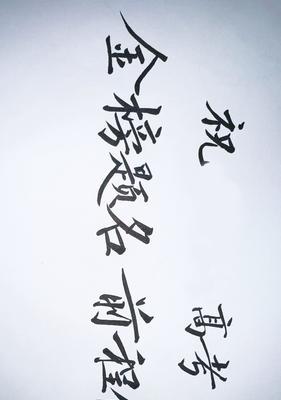 祝 高考
金榜题名 前程